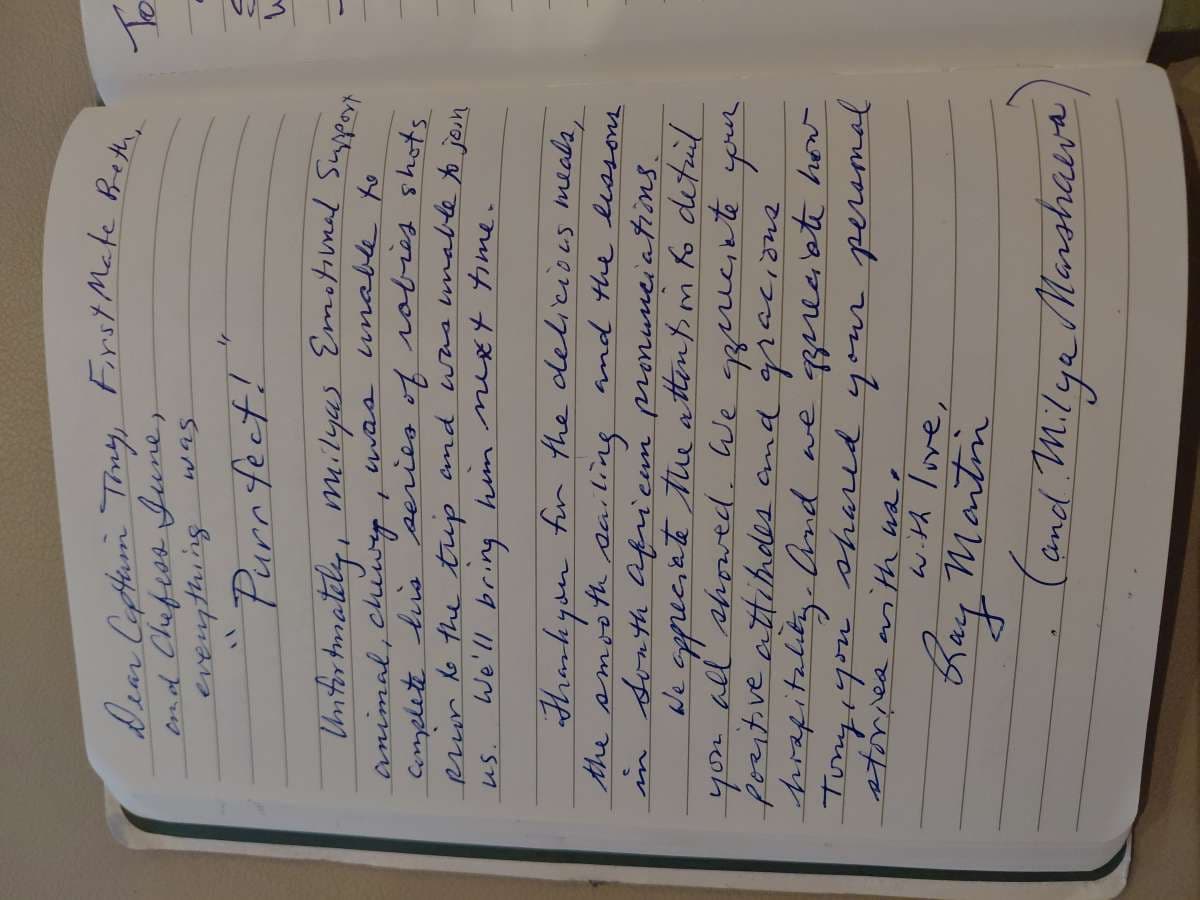 Dear Captain Tony, First Mate Beth,
and Chefess June,
everything was
"Purrrfect!"
Unfortunately, Milyas Emotional Support
animal, chewy, was unable to
complete his series of rabies shots
prior to the trip and was unable to join
us. We'll bring him next time.
Thankyou for the delicious meals,
the smooth sailing and the lessons
in South African pronunciations.
We appreciate the attention to detail
you all showed. We appreciate your
positive attitudes and gracious
hospitality. And we appreciate how
Tony, you shared your personal
stories with us.
with love,
Ray Martin
(and Milya Manshaeva)
To